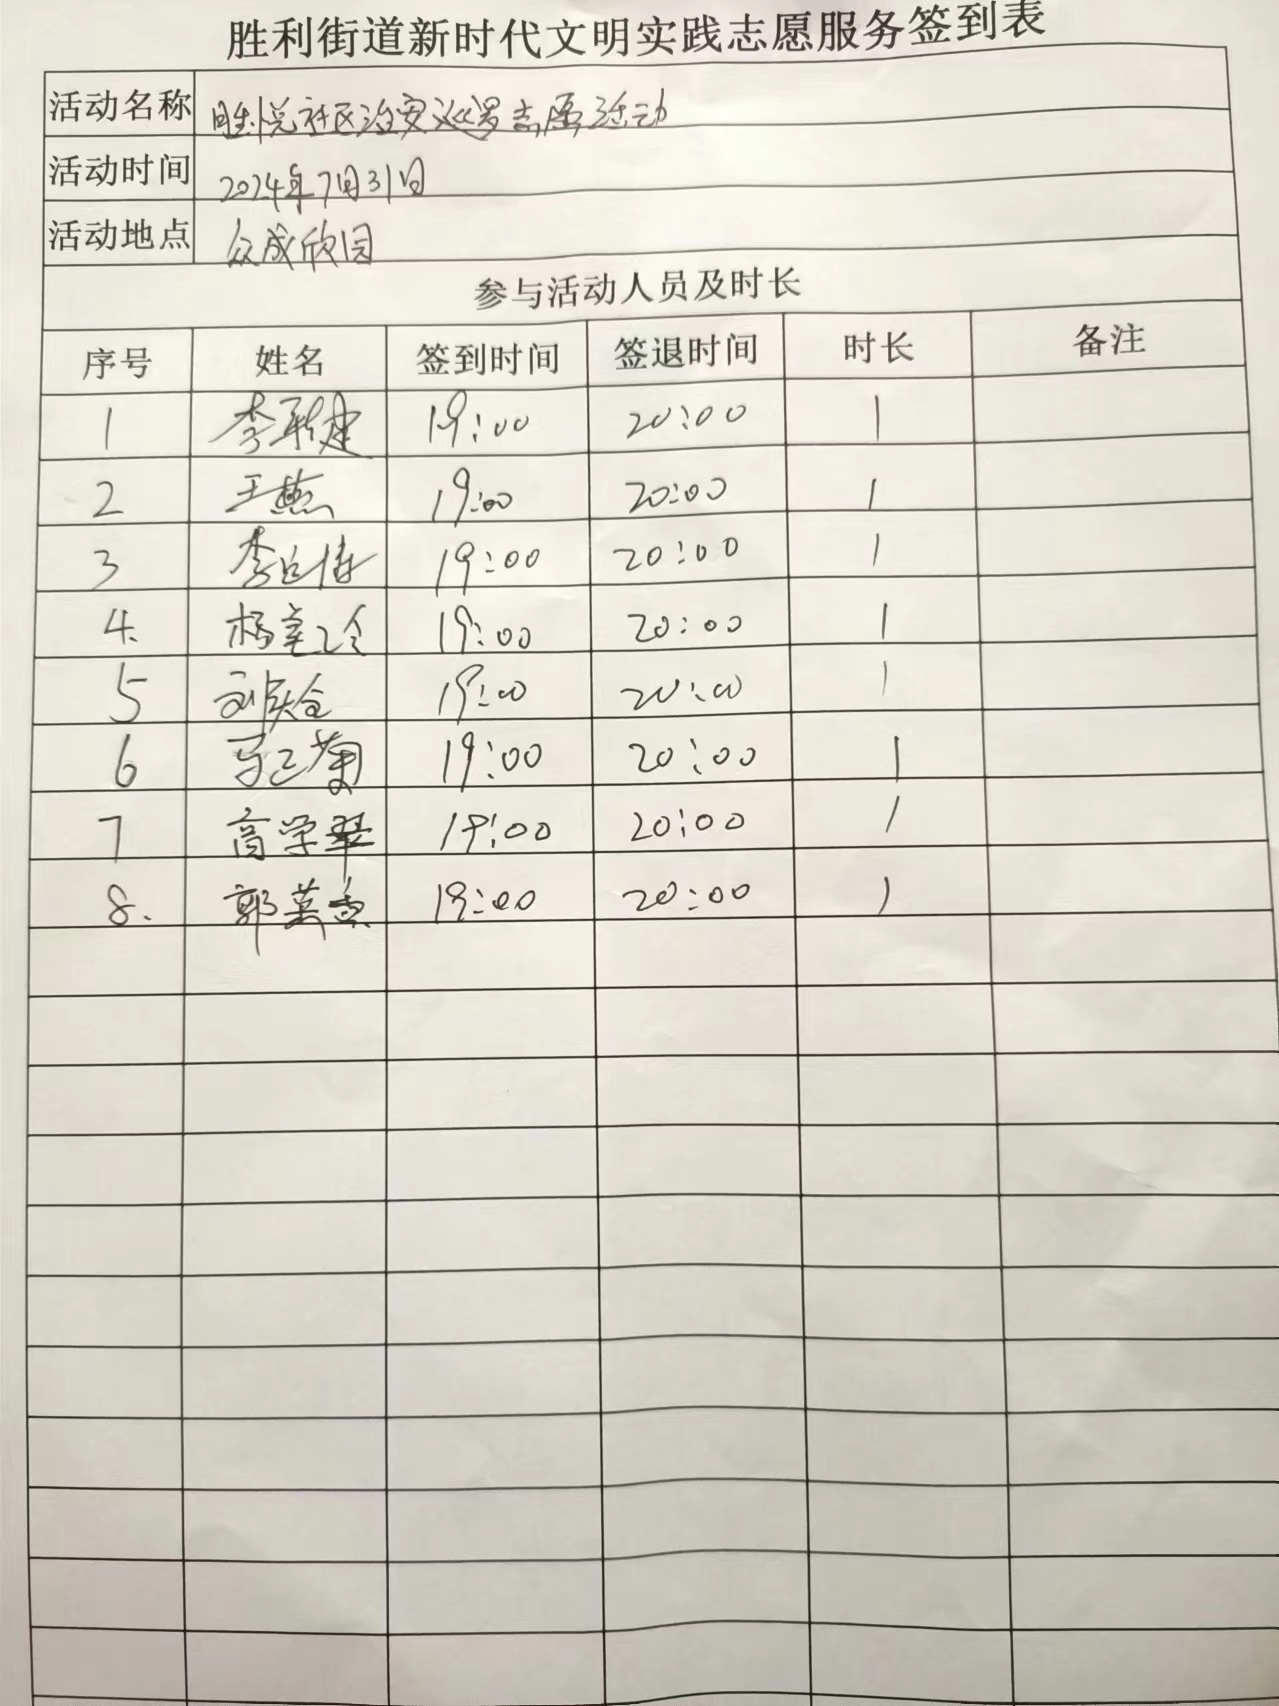 胜利街道新时代文明实践志愿服务签到表
活动名称 胜悦社区治安巡逻志愿活动
活动时间 2024年7月31日
活动地点 众成欣园
参与活动人员及时长
序号 姓名 签到时间 签退时间 时长 备注
1 李 建 19:00 20:00 1
2 王燕 19:00 20:00 1
3 李 19:00 20:00 1
4. 杨 19:00 20:00 1
5 刘庆仓 19:00 20:00 1
6 菊 19:00 20:00 1
7 高学琴 19:00 20:00 1
8. 郭英 19:00 20:00 1